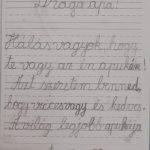 Drága apa!
Hálás vagyok, hogy
te vagy az én apukám!
Azt szeretem benned,
hogy vicces vagy és kedves.
A világ legjobb apukája